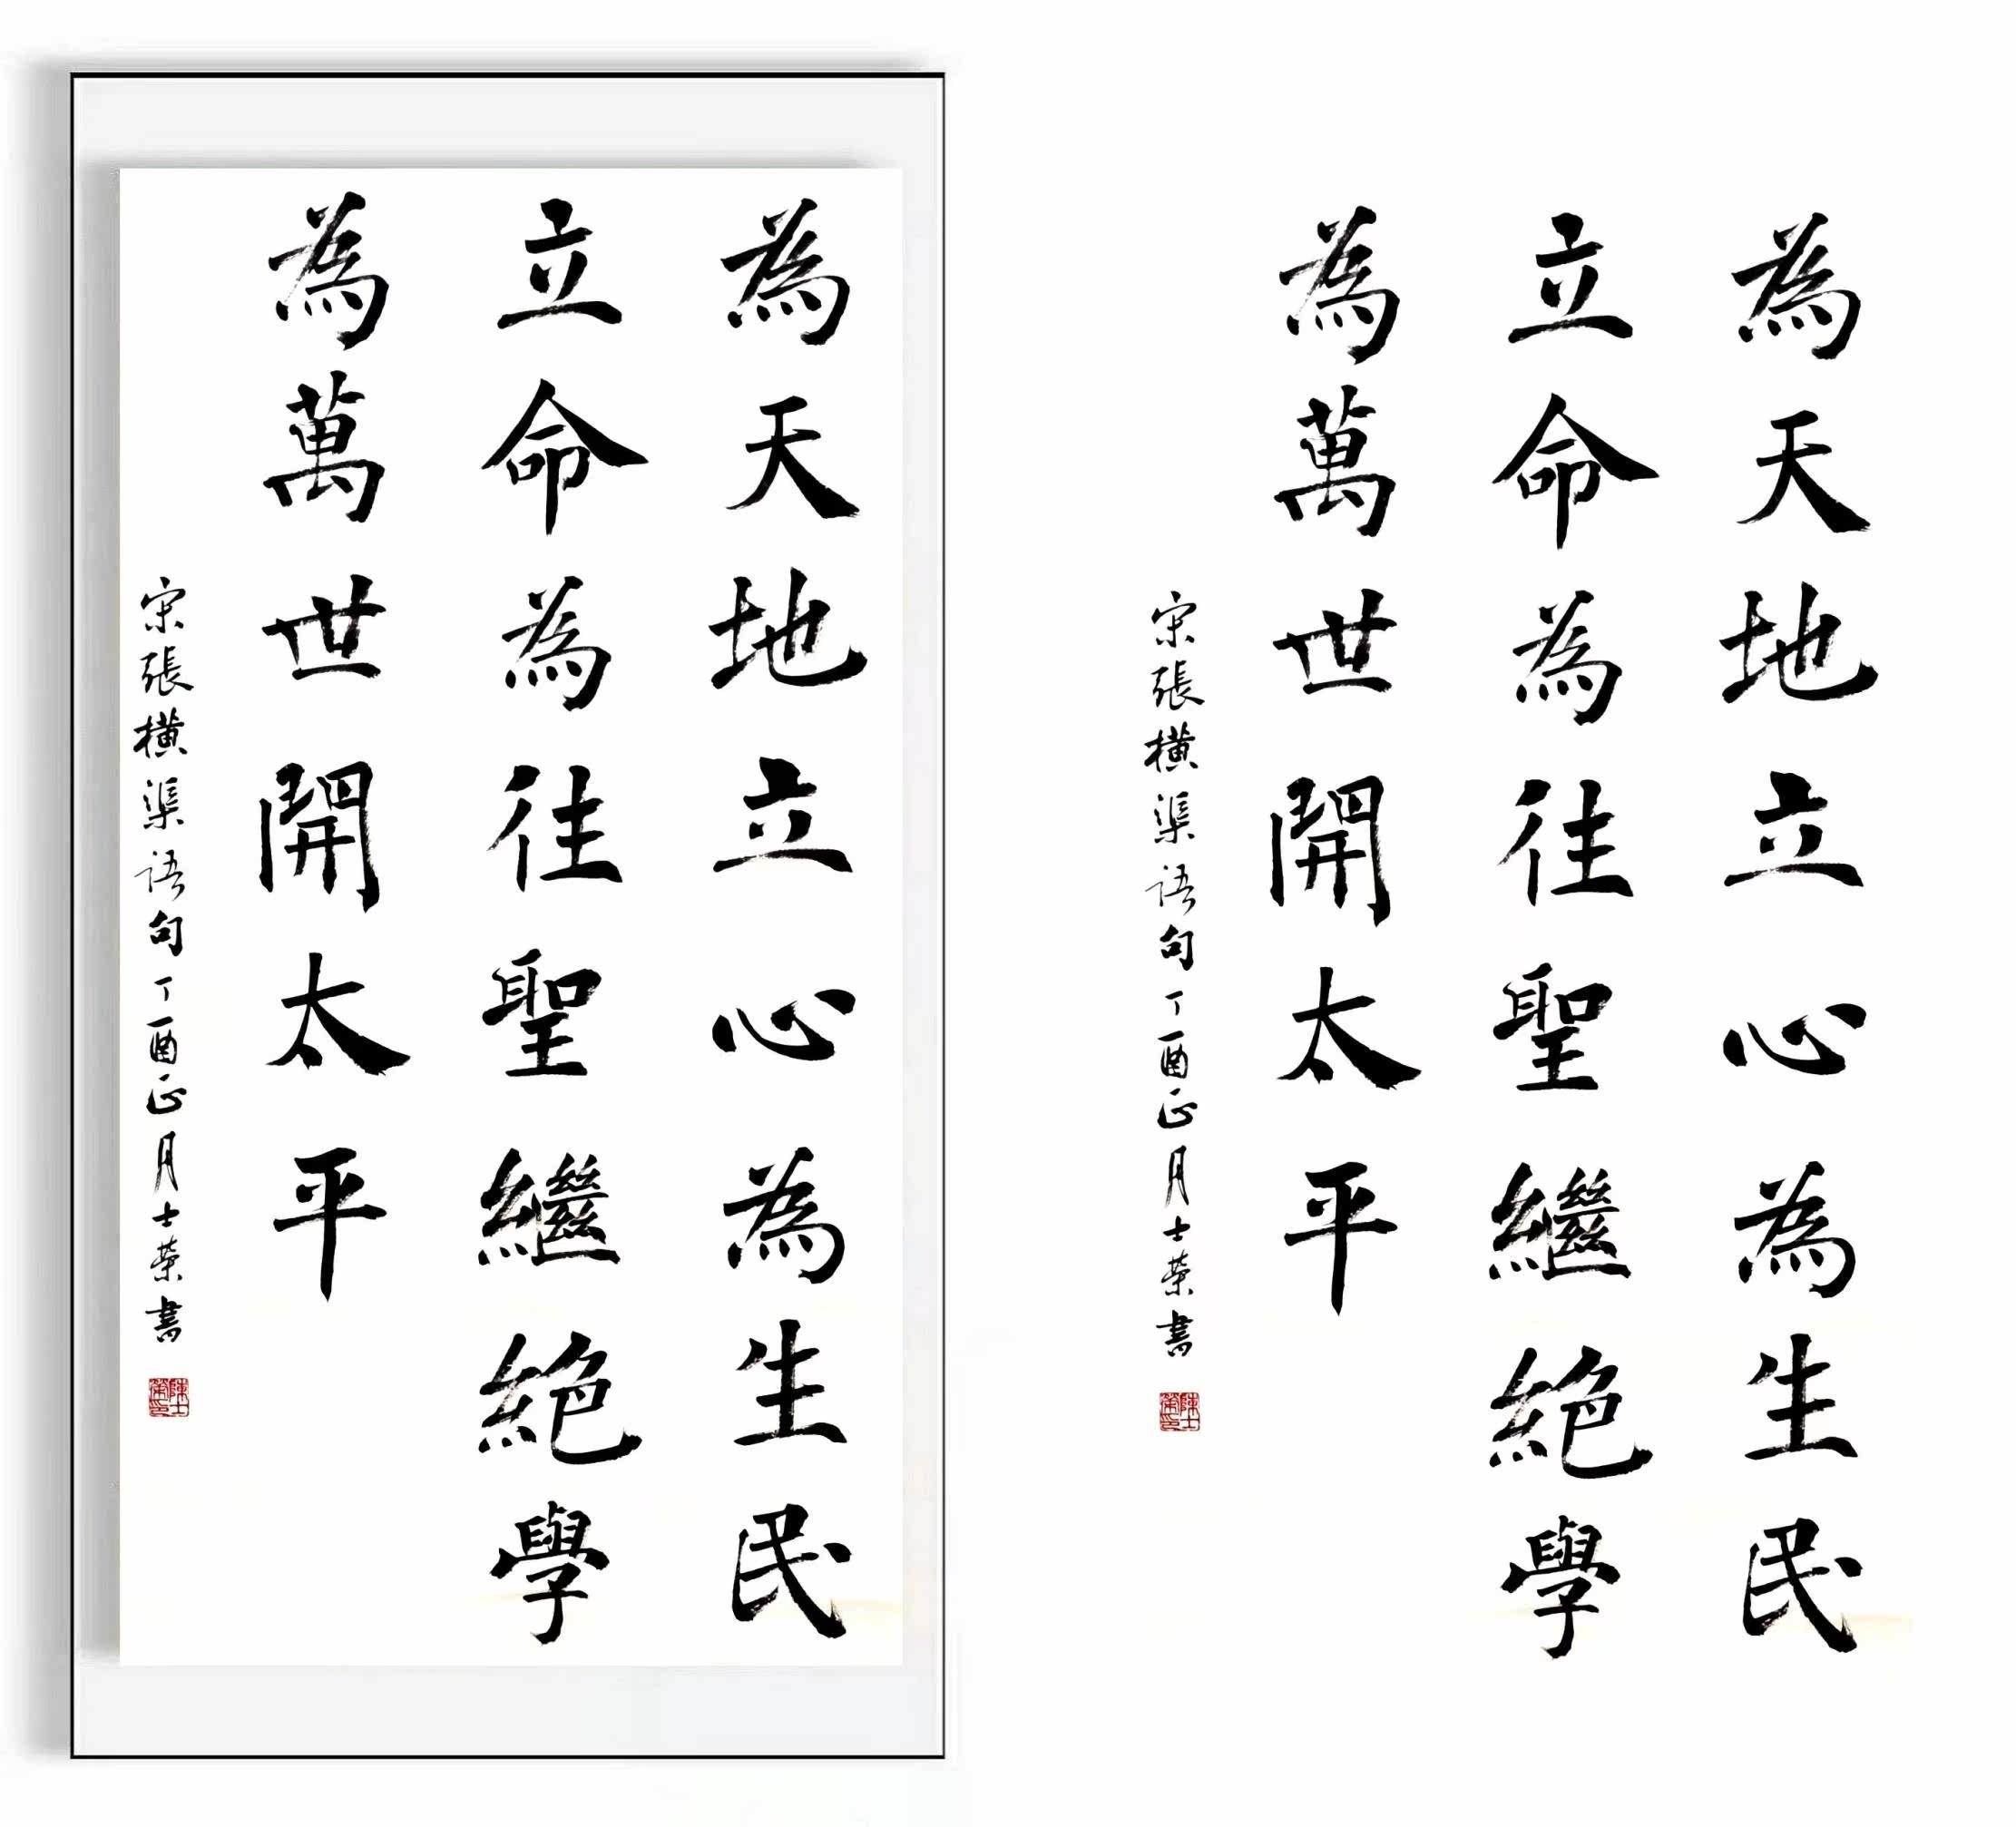 為天地立心為生民
立命為往聖繼絕學
為萬世開太平
宋張橫渠语句丁酉正月士荣書
陳士榮印
為天地立心為生民
立命為往聖繼絕學
為萬世開太平
宋張橫渠语句丁酉正月士荣書
陳士榮印